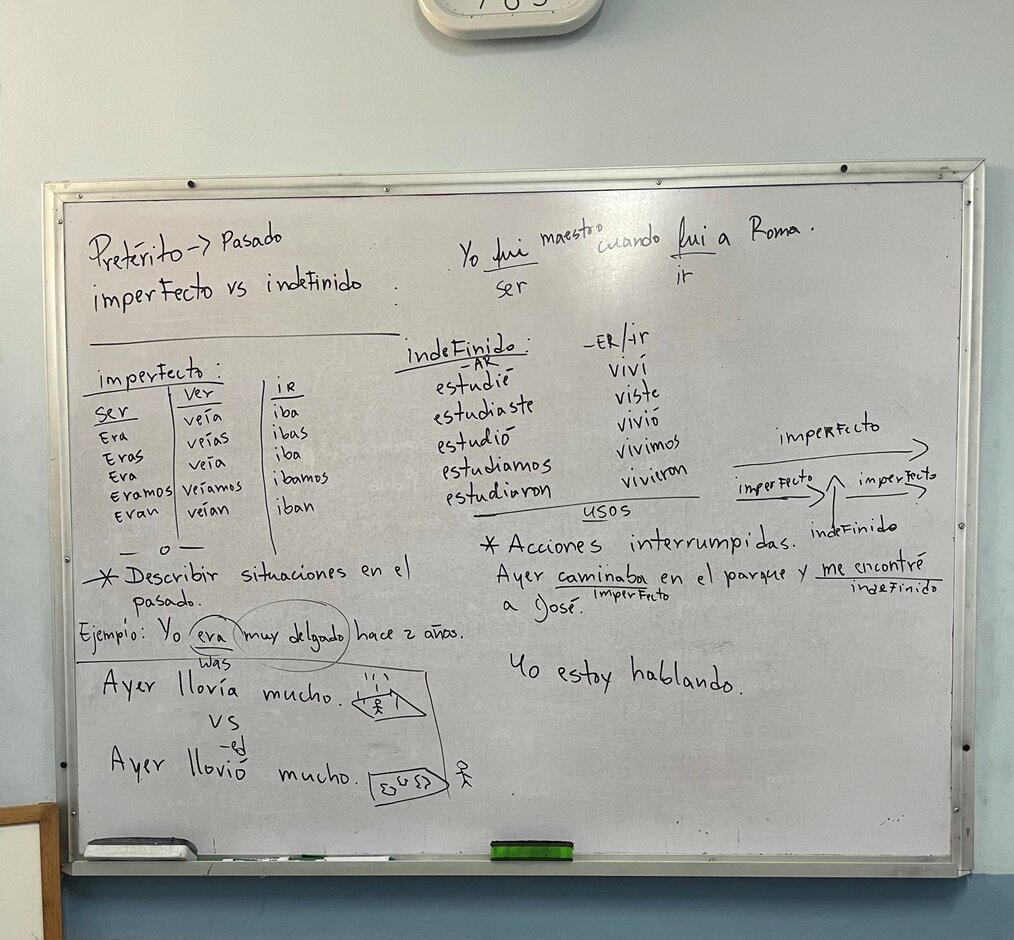 7 6 5
Pretérito -> Pasado
imperfecto vs indefinido
Yo fui maestro cuando fui a Roma.
ser ir
imperfecto:
ser
Era
Eras
Era
Eramos
Eran
ver
veía
veías
veía
veíamos
veían
iR
iba
ibas
iba
ibamos
iban
indefinido:
-AR
estudié
estudiaste
estudió
estudiamos
estudiaron
-ER/-ir
viví
viste
vivió
vivimos
vivieron
imperfecto
imperfecto imperfecto
indefinido
— o —
* Describir situaciones en el
pasado.
Ejempio: Yo era muy delgado hace 2 años.
was
Ayer llovía mucho.
vs
-ed
Ayer llovió mucho.
usos
* Acciones interrumpidas.
Ayer caminaba en el parque y me encontré
imperfecto indefinido
a José.
Yo estoy hablando.